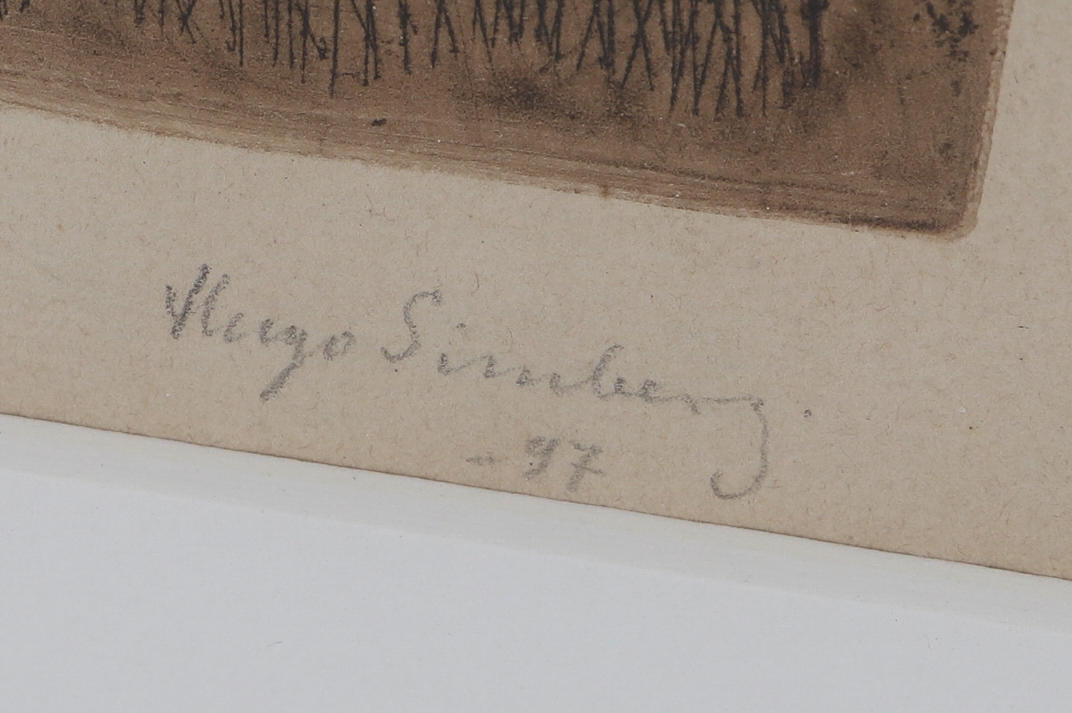 Hugo Simberg.
- 97